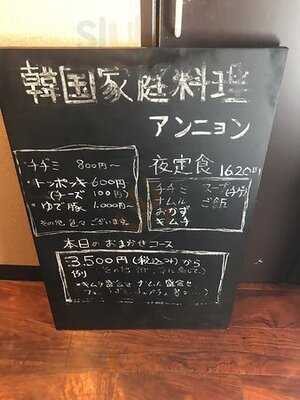 韓国家庭料理
アンニョン
・チヂミ 800円〜
・トッポッキ 600円
(チーズ 100円)
・ゆで豚 1,000円〜
その他 色々 ございます
夜定食 1620円
チヂミ スープ(チゲ)
ナムル ご飯
おかず
キムチ
本日の おまかせコース
3,500円(税込み)から
例
・キムチ盛合せ ナムル盛合せ